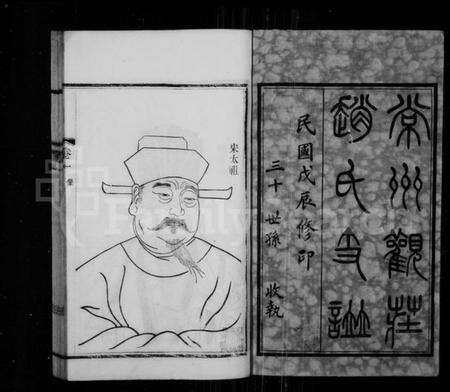 常州觀莊
趙氏支譜
民國戊辰修印
三十世孫 收執
宋太祖
卷一 像
FamilySearch